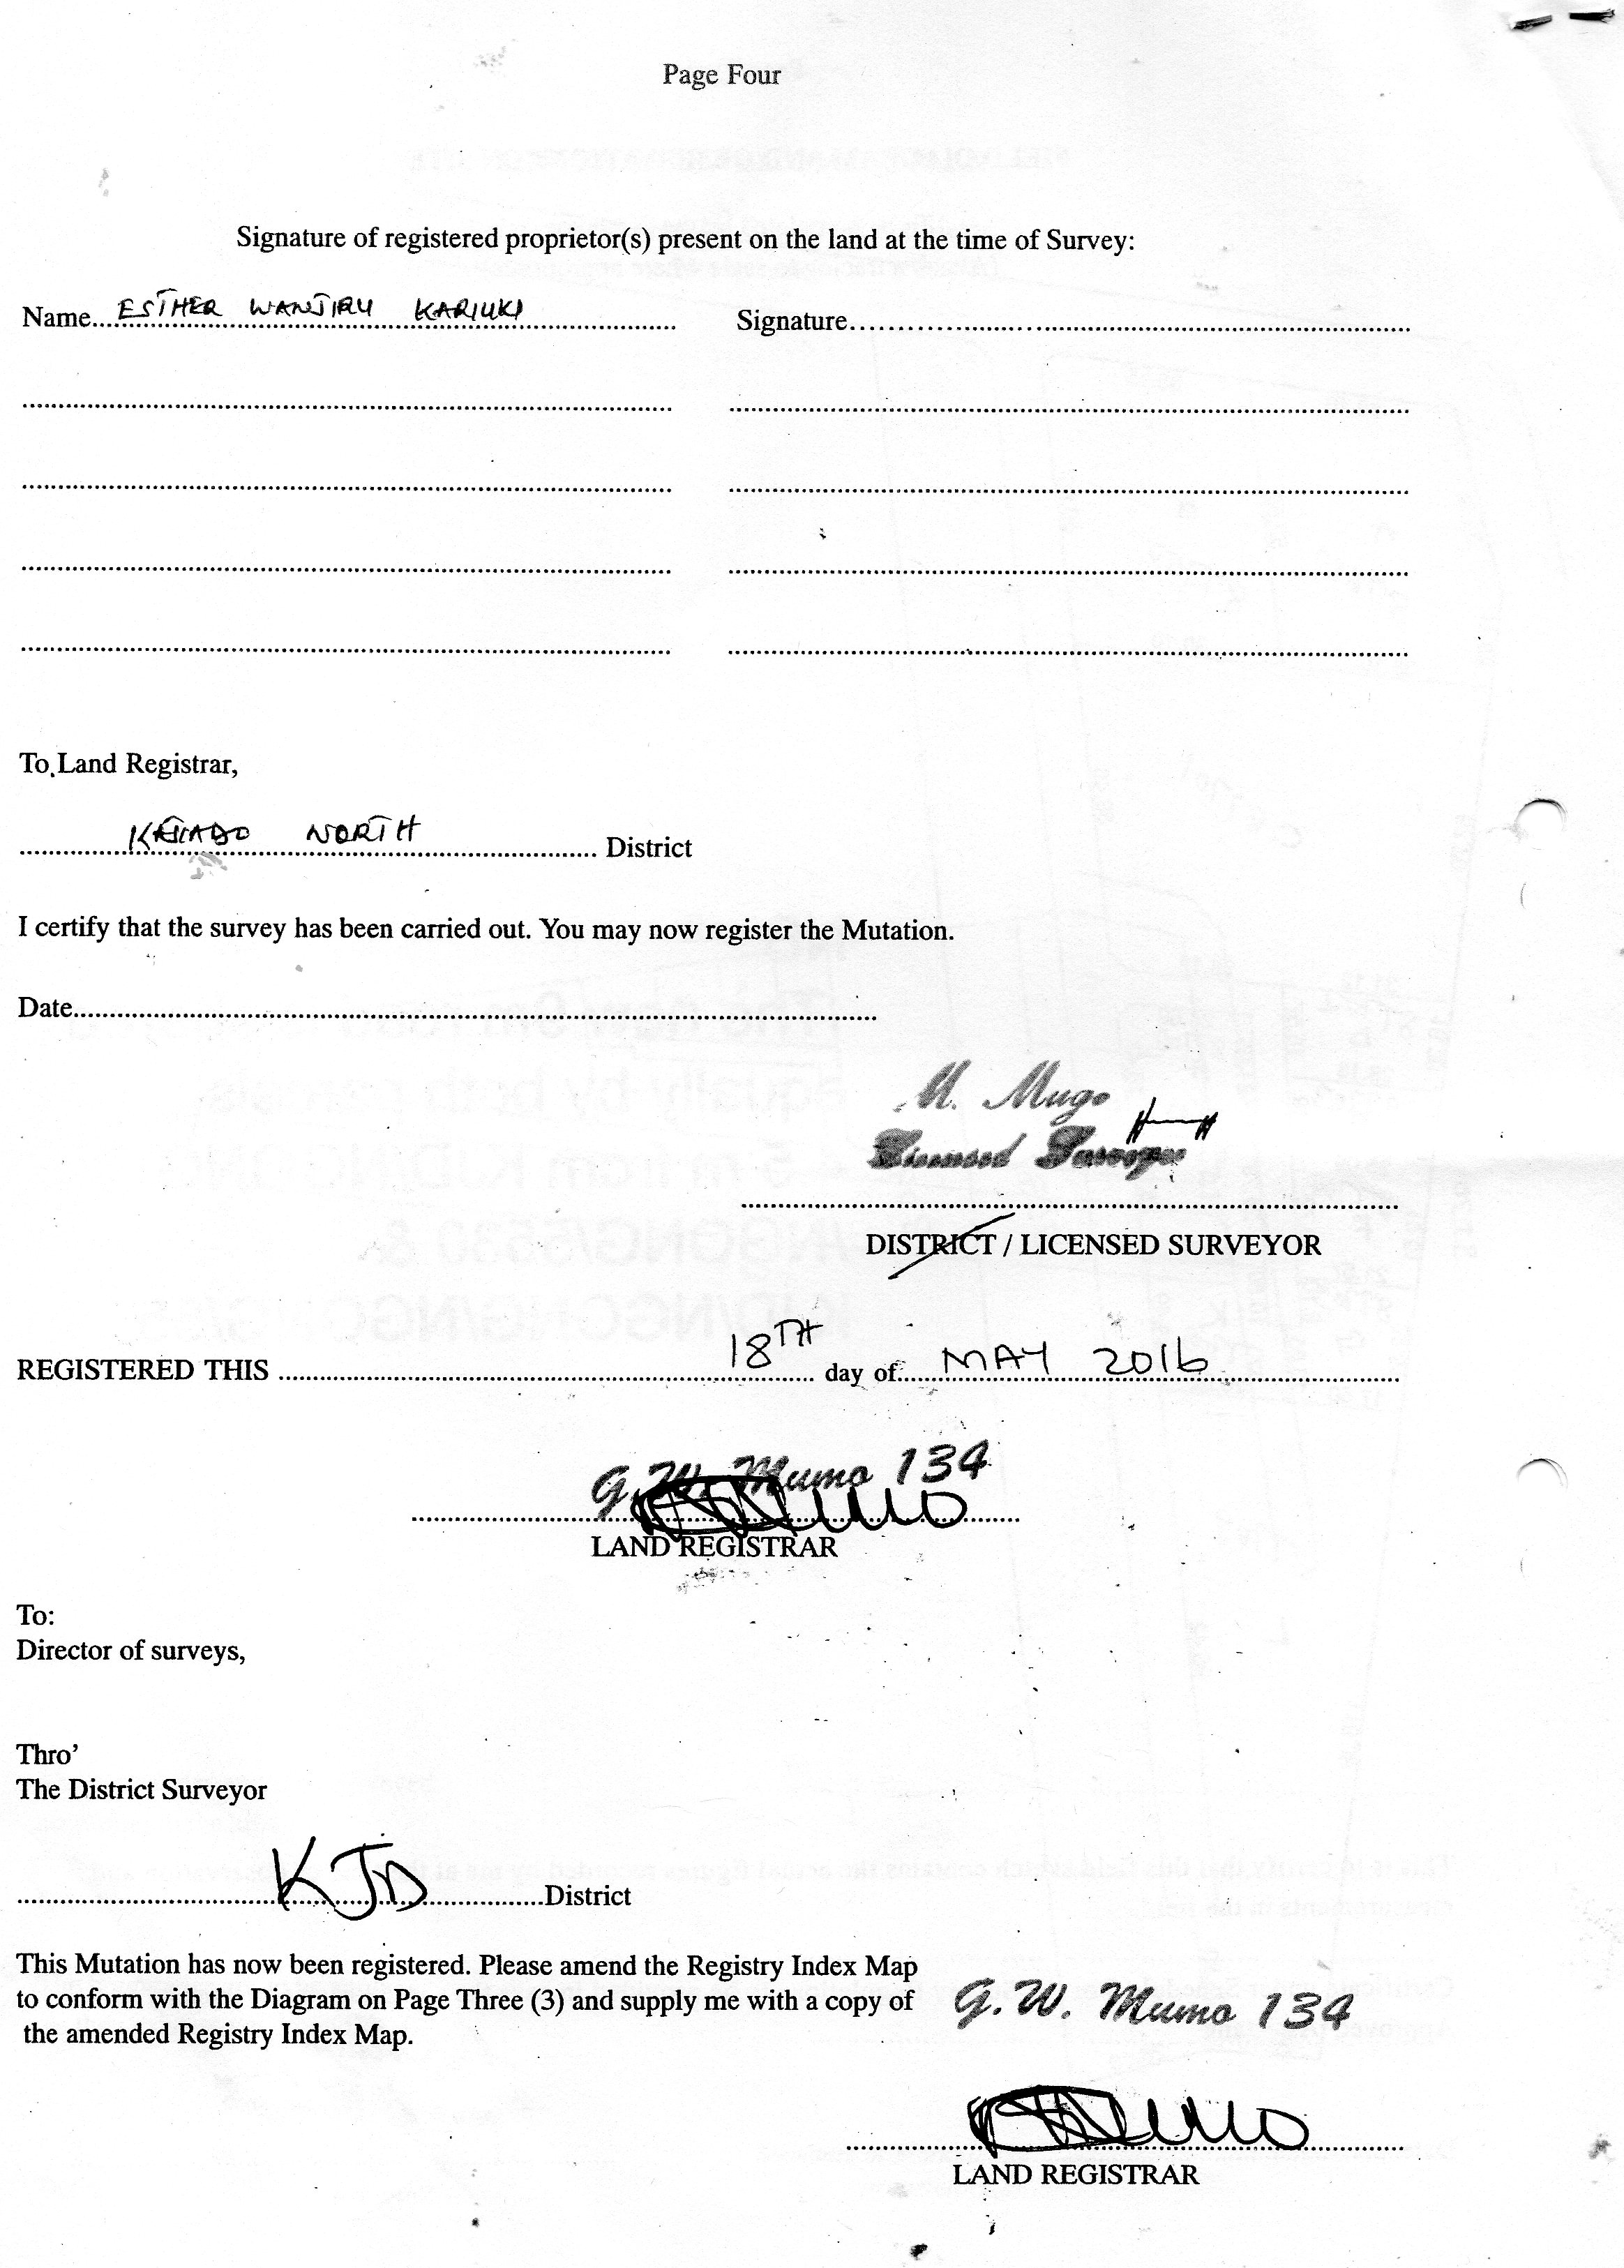 Page Four
Signature of registered proprietor(s) present on the land at the time of Survey:
Name ESTHER WANJIRU KARIUKI Signature
To Land Registrar,
KAJIADO NORTH District
I certify that the survey has been carried out. You may now register the Mutation.
Date
M. Mugo
Licensed Surveyor
DISTRICT / LICENSED SURVEYOR
REGISTERED THIS 18TH day of MAY 2016
G.W. Mumo 134
LAND REGISTRAR
To:
Director of surveys,
Thro'
The District Surveyor
KJD District
This Mutation has now been registered. Please amend the Registry Index Map
to conform with the Diagram on Page Three (3) and supply me with a copy of
the amended Registry Index Map.
G.W. Mumo 134
LAND REGISTRAR